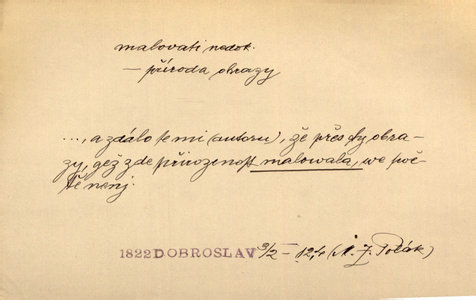 malovati nedok.
– příroda obrazy
..., a zdálo se mi (autoru), žě přes ty obra-
zy, gež zde přirozenost malowala, we swě-
tě nenj.
1822 DOBROSLAV 3/2 – 124 (M. Z. Polák)